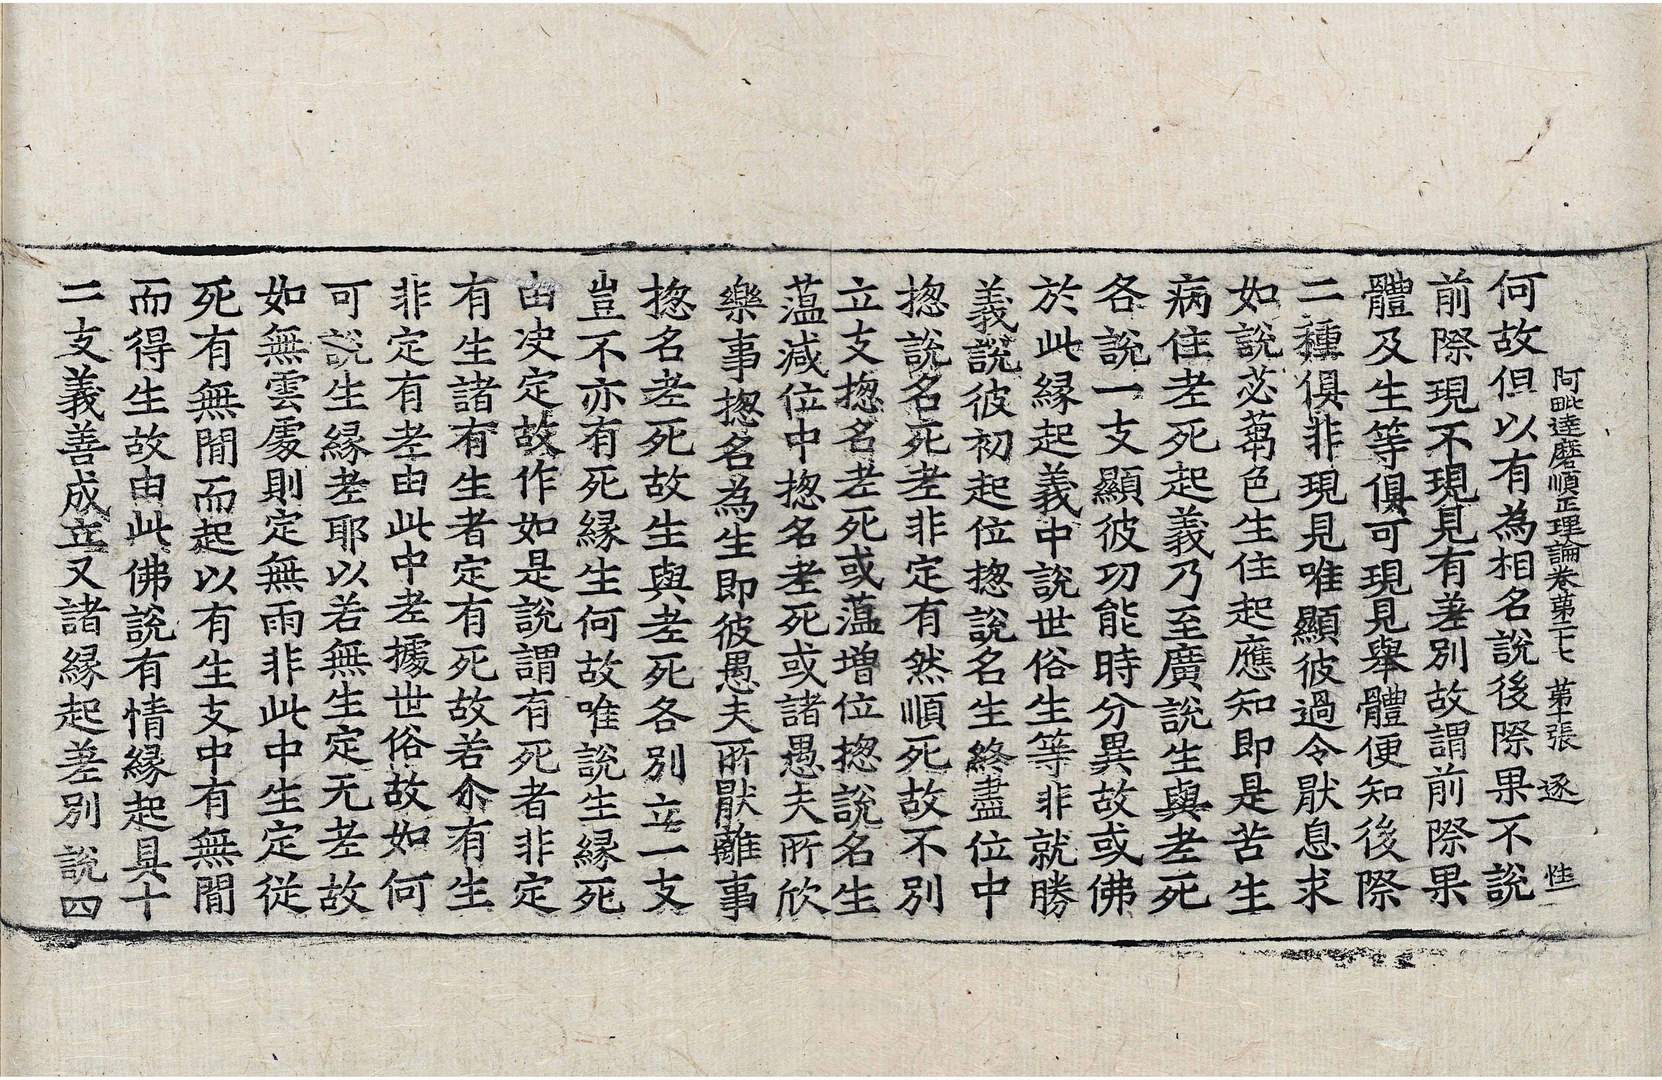 阿毗達磨順正理論卷第二十七 第十張 逐
何故但以有為相名說後際果不說
前際現不現見有差別故謂前際果
體及生等俱可現見舉體便知後際
二種俱非現見唯顯彼過令猒息求
如說苾蒭色生住起應知即是苦生
病住老死起義乃至廣說生與老死
各說一支顯彼功能時分異故或佛
於此縁起義中說世俗生等非就勝
義說彼初起位揔說名生終盡位中
揔說名死老非定有然順死故不別
立支揔名老死或薀増位揔說名生
薀減位中揔名老死或諸愚夫所欣
樂事揔名為生即彼愚夫所猒離事
揔名老死故生與老死各別立一支
豈不亦有死縁生何故唯說生縁死
由决定故作如是說謂有死者非定
有生諸有生者定有死故若尒有生
非定有老由此中老據世俗故如何
可說生縁老耶以若無生定无老故
如無雲處則定無雨非此中生定從
死有無閒而起以有生支中有無閒
而得生故由此佛說有情縁起具十
二支義善成立又諸縁起差別說四